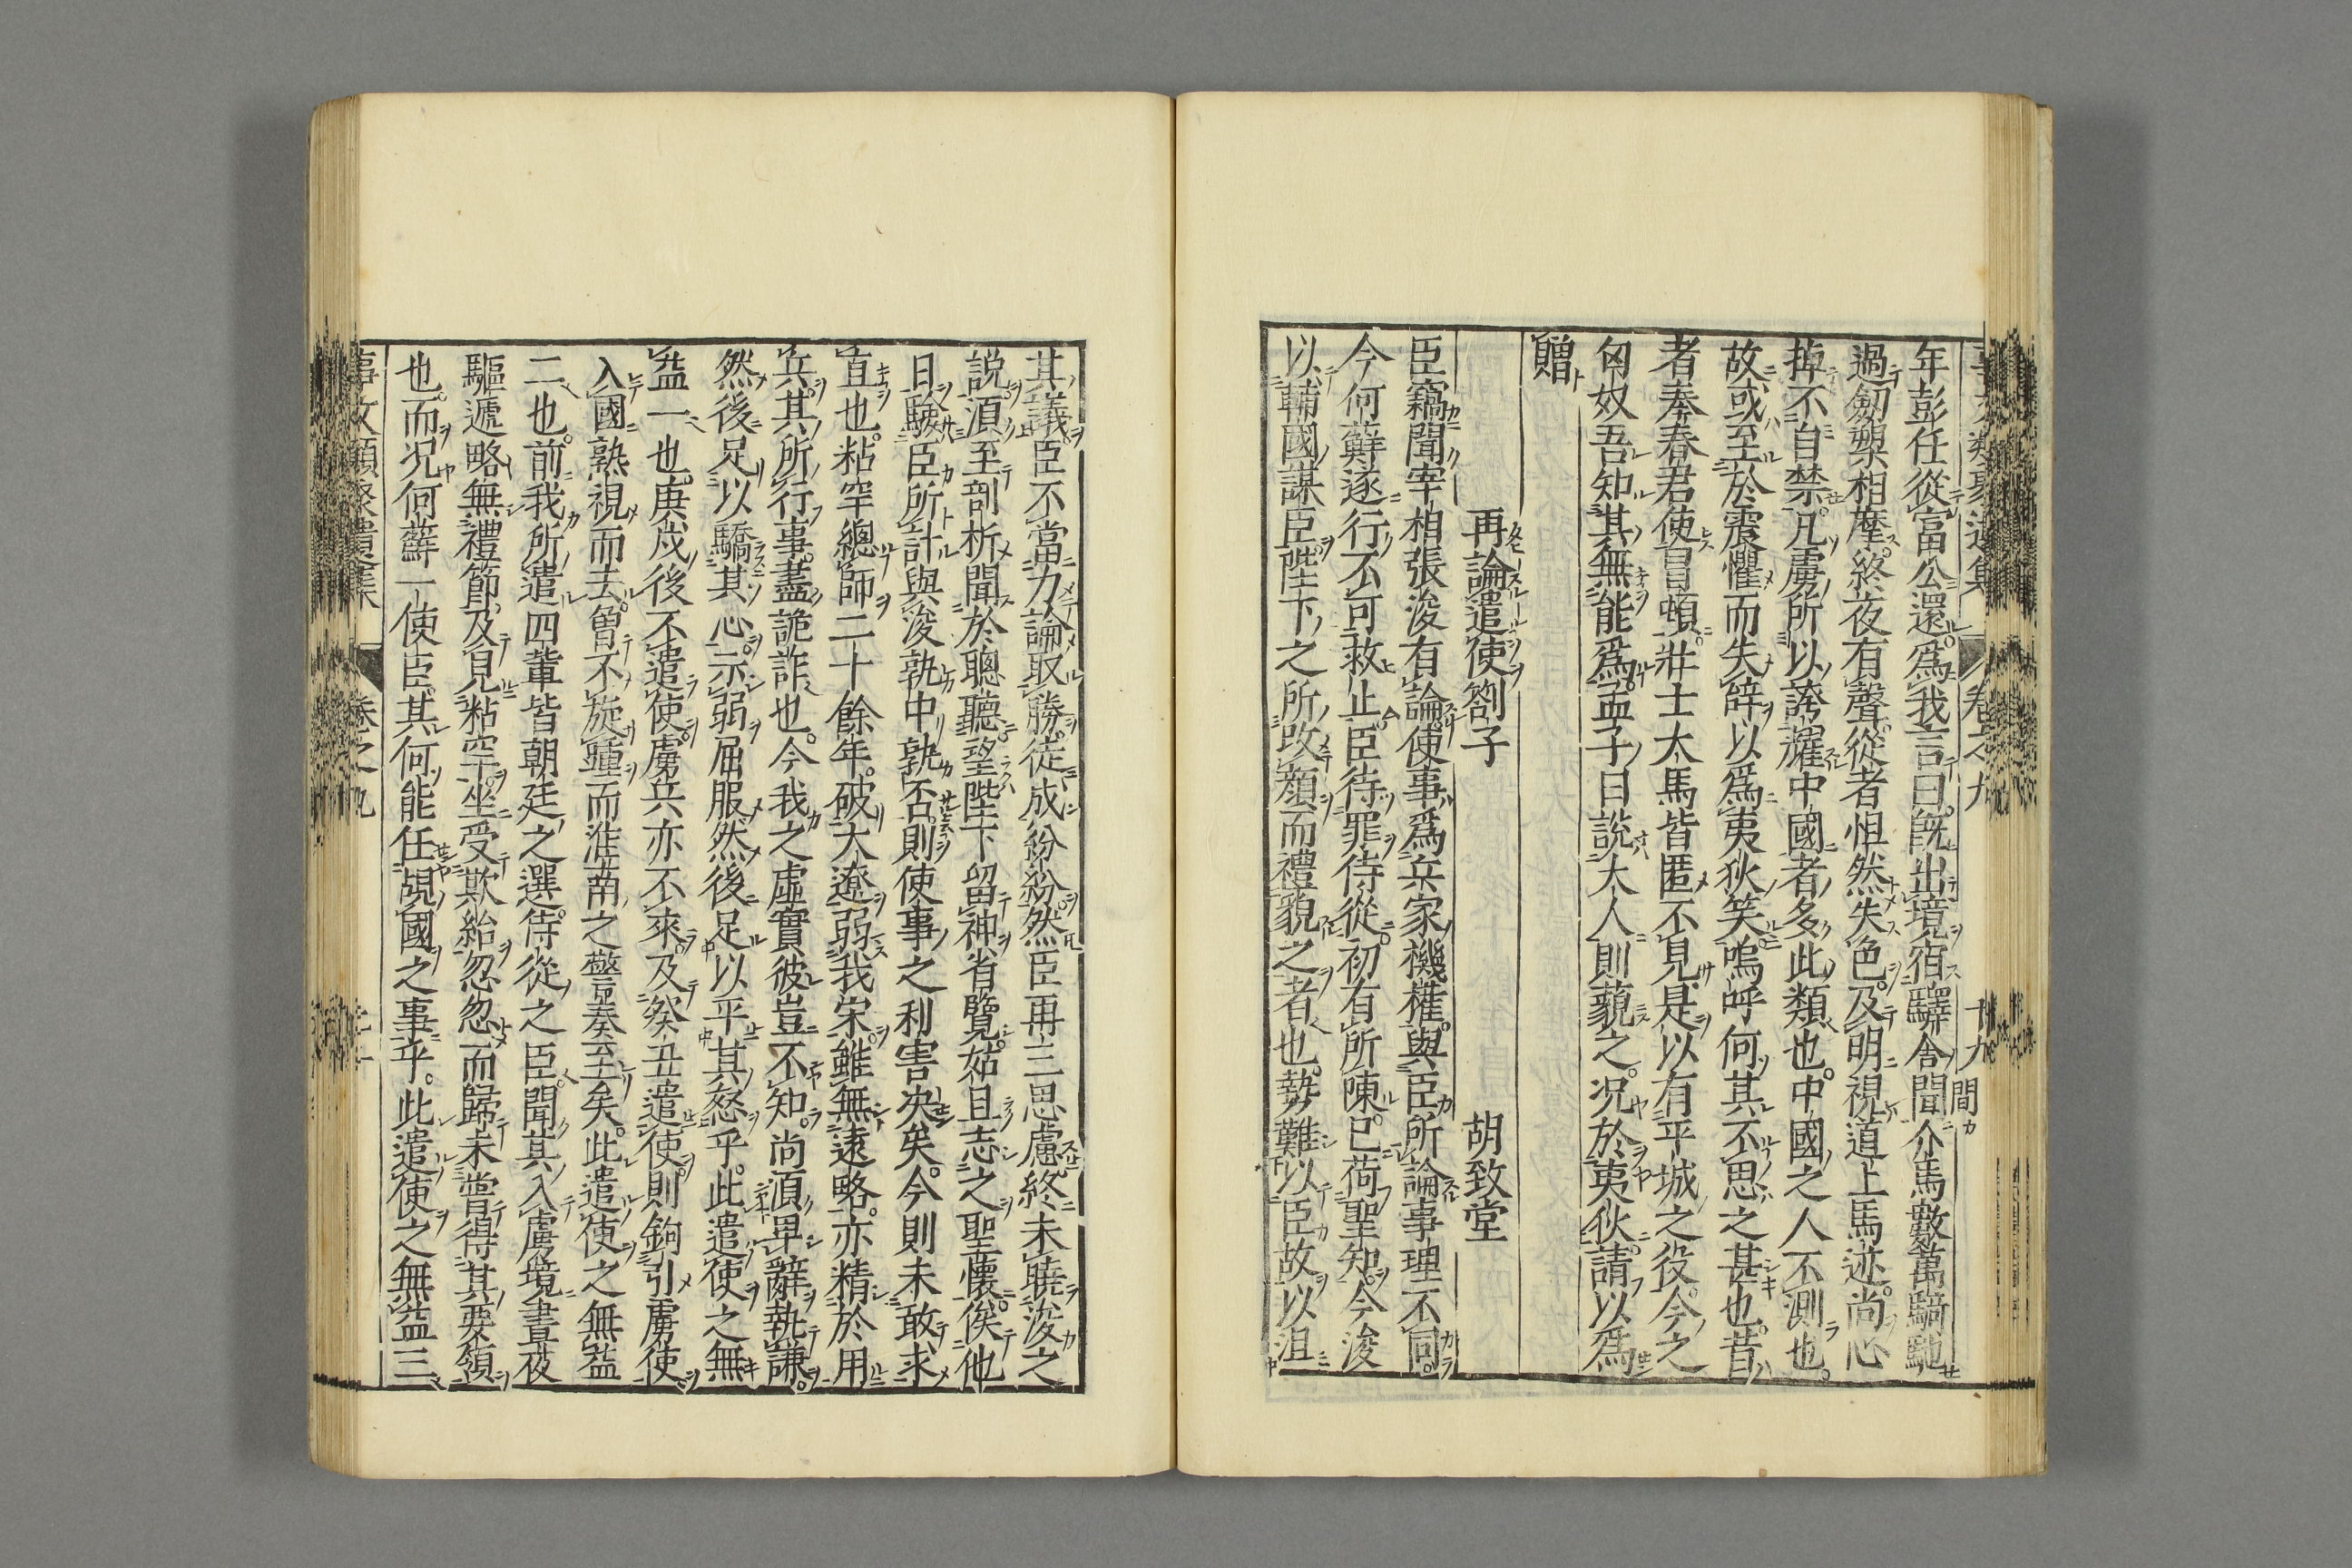 年彭任從富公還爲我言曰旣出境宿驛舍聞介馬數萬騎馳
間カ
過劒槊相摩終夜有聲從者怛然失色及明視道上馬迹尚心
掉不自禁凡虜所以誇耀中國者多此類也中國之人不測也
故或至於震懼而失辭以爲夷狄笑嗚呼何其不思之甚也昔
者奉春君使冒頓壯士大馬皆匿不見是以有平城之役今之
匈奴吾知其無能爲孟子曰說大人則藐之况於夷狄請以爲
贈
再論遣使劄子　胡致堂
臣竊聞宰相張浚有論使事爲兵家機權與臣所論事理不同
今何蘚遂行不可救止臣待罪侍從初有所陳已荷聖知今浚
以輔國謀臣陛下之所改顏而禮貌之者也勢難以臣故以沮
其議臣不當力論取勝徒成紛紛然臣再三思慮終未曉浚之
説湏至剖析聞於聰聽望陛下留神省覽姑且志之聖懷俟他
日驗臣所計與浚孰中孰否則使事之利害决矣今則未敢求
直也粘罕總師二十餘年破大遼弱我宋雖無遠略亦精於用
兵其所行事盡詭詐也今我之虛實彼豈不知尚湏卑辭執謙
然後足以驕其心示弱屈服然後足以平其怒乎此遣使之無
益一也庚戌後不遣使虜兵亦不來及癸丑遣使則鉤引虜使
入國熟視而去曾不旋踵而淮南之警奏至矣此遣使之無益
二也前我所遣四輩皆朝廷之選侍從之臣聞其入虜境晝夜
驅遞略無禮節及見粘罕坐受欺紿忽忽而歸未嘗得其要領
也而况何蘚一使臣其何能任覘國之事乎此遣使之無益三
事文類聚遺集　卷之九